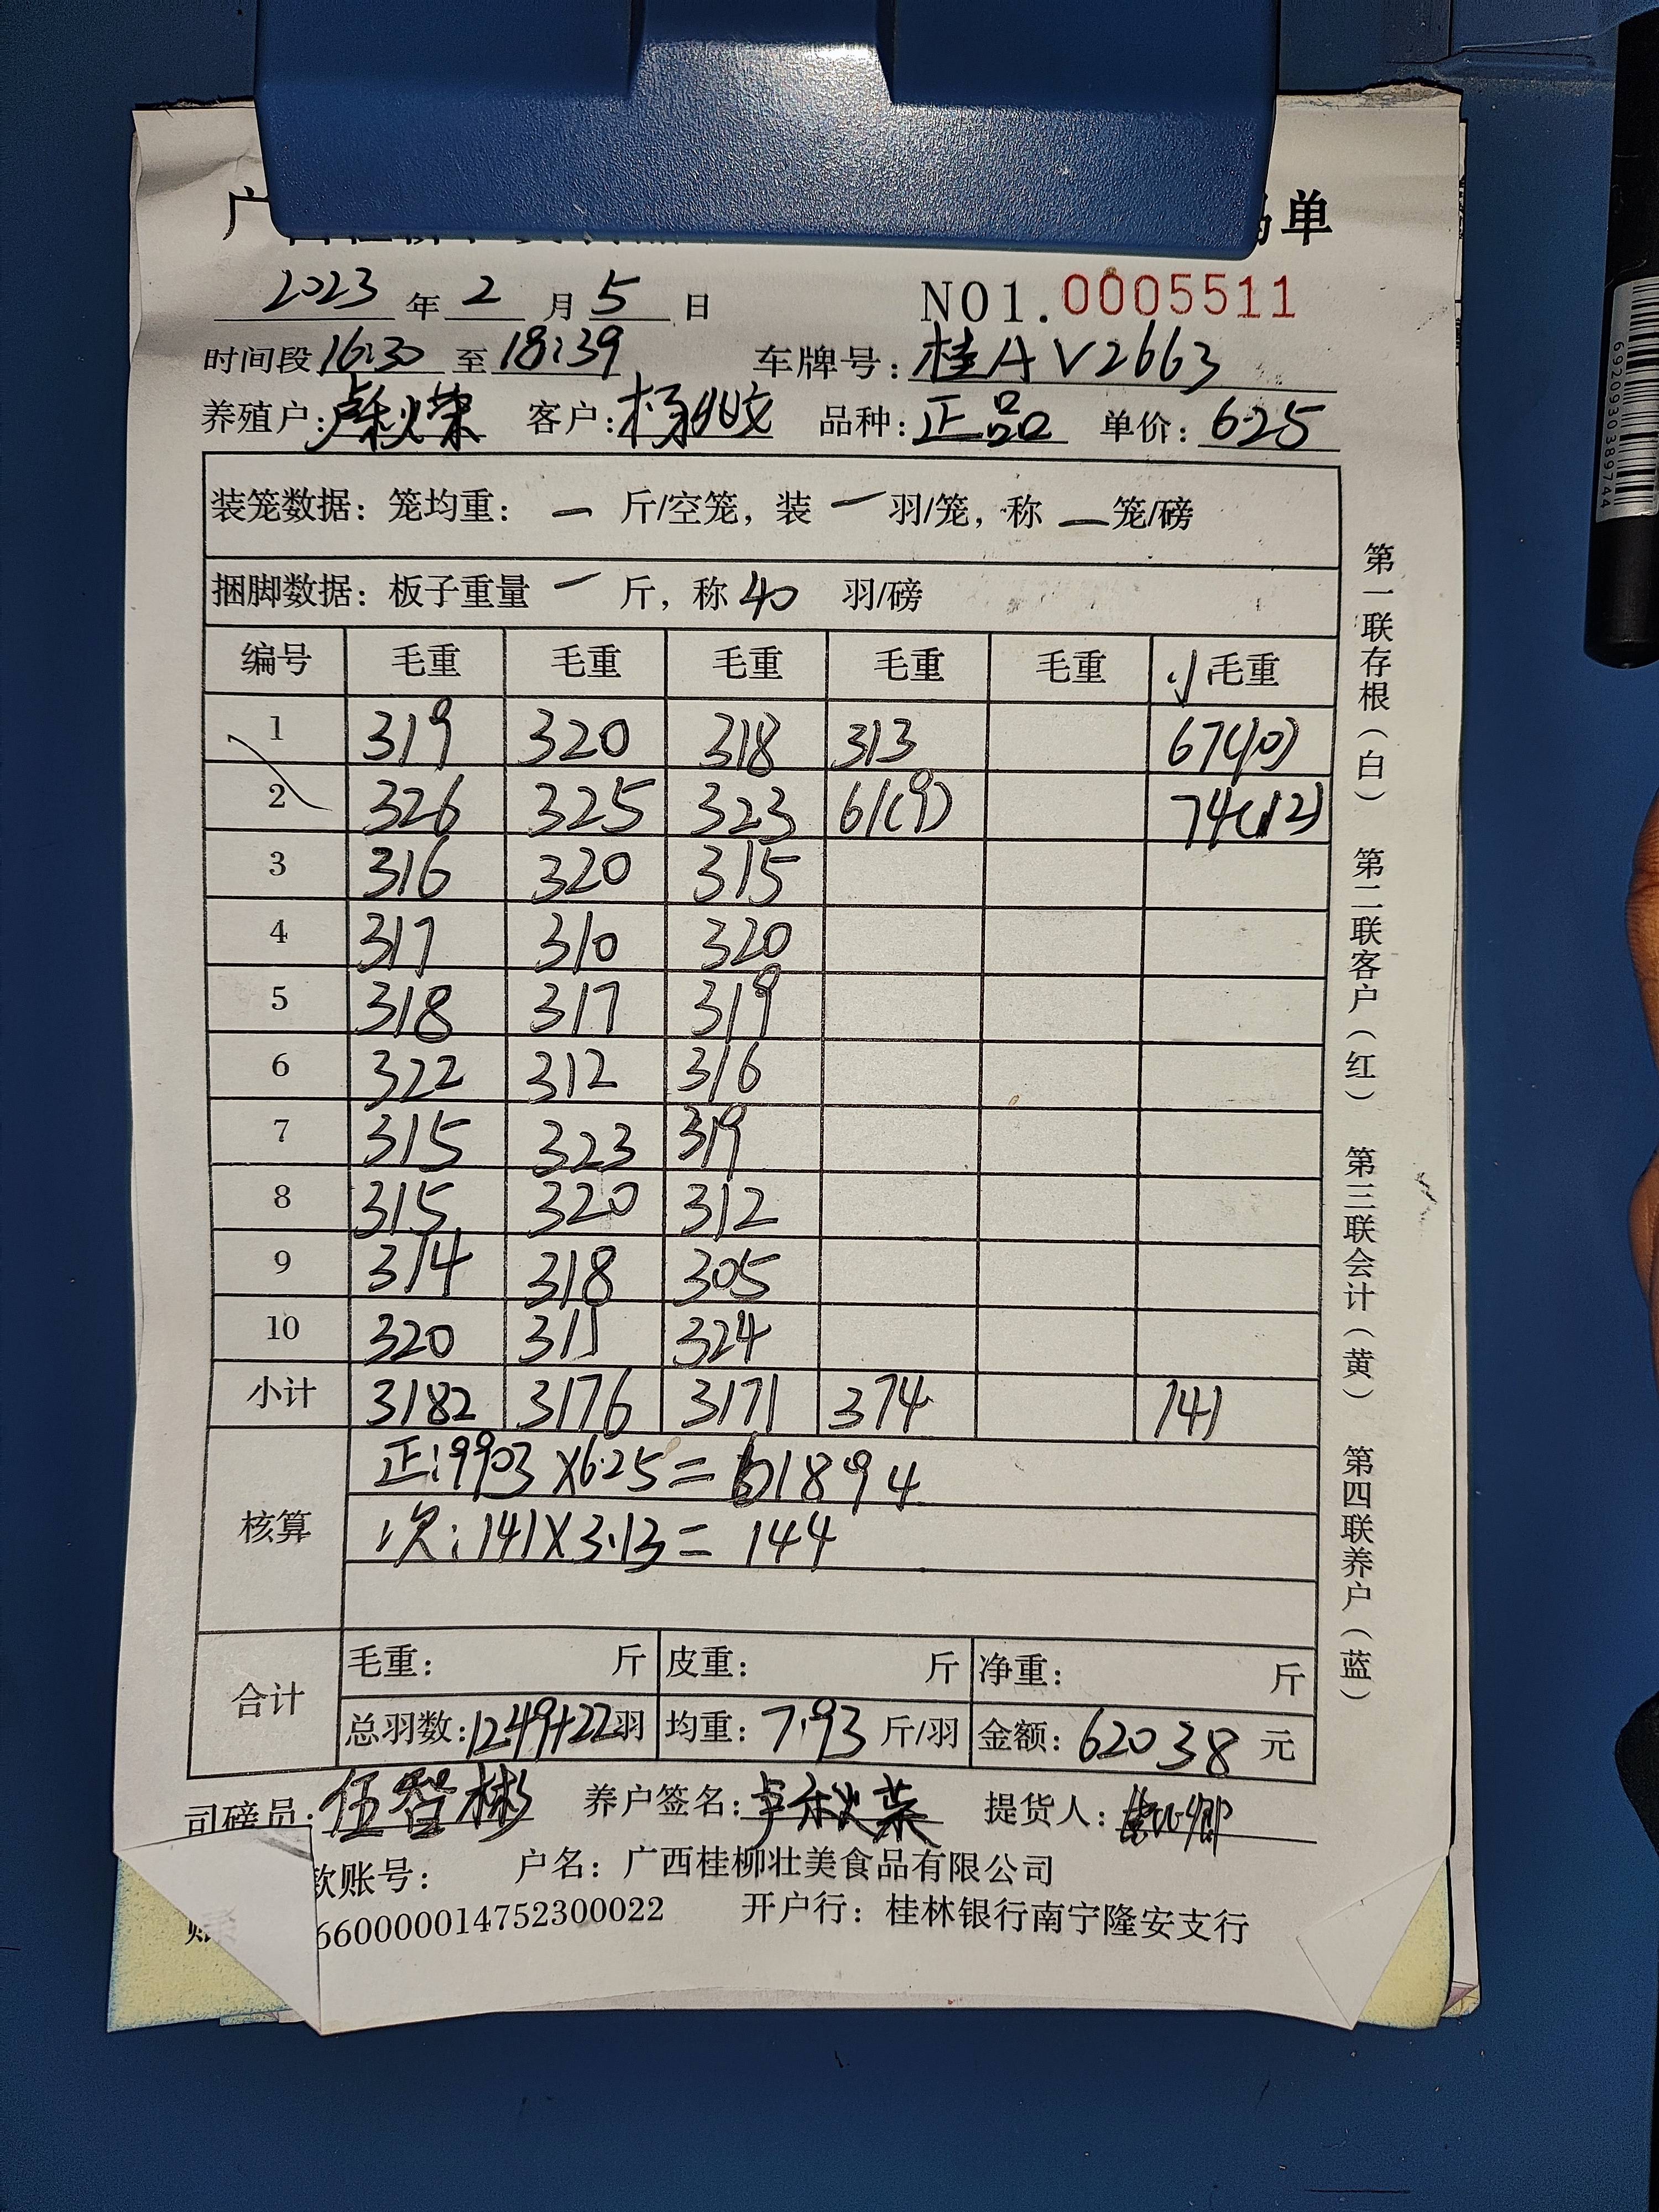 广西桂柳 单
2023 年 2 月 5 日 NO1.0005511
时间段 16:30 至 18:39 车牌号: 桂AV2663
养殖户: 卢秋荣 客户: 杨 品种: 正品 单价: 6.25
装笼数据: 笼均重: 一 斤/空笼, 装 一 羽/笼, 称 一 笼/磅
捆脚数据: 板子重量 一 斤, 称 40 羽/磅
编号 毛重 毛重 毛重 毛重 毛重 毛重
1 319 320 318 313 67(10)
2 326 325 323 61(9) 74(12)
3 316 320 315
4 317 310 320
5 318 317 319
6 322 312 316
7 315 323 319
8 315 320 312
9 314 318 305
10 320 311 324
小计 3182 3176 3171 374 141
核算 正:9903×6.25=61894
次:141×3.13=144
合计 毛重: 斤 皮重: 斤 净重: 斤
总羽数: 1249+22 羽 均重: 7.93 斤/羽 金额: 62038 元
司磅员: 伍智彬 养户签名: 卢秋荣 提货人:
款账号: 户名: 广西桂柳壮美食品有限公司
660000014752300022 开户行: 桂林银行南宁隆安支行
第一联存根(白) 第二联客户(红) 第三联会计(黄) 第四联养户(蓝)
6920930389744